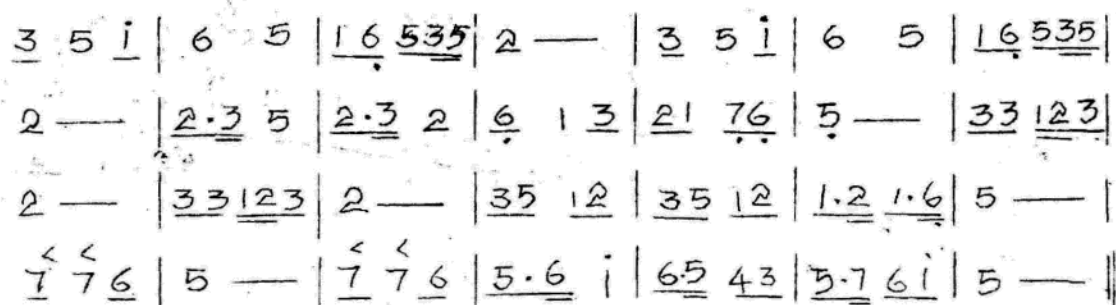 3 5 i | 6 5 | 16 535 | 2 — | 3 5 i | 6 5 | 16 535 |
2 — | 2·3 5 | 2·3 2 | 6 1 3 | 21 76 | 5 — | 33 123 |
2 — | 33 123 | 2 — | 35 12 | 35 12 | 1·2 1·6 | 5 — |
7 7 6 | 5 — | 7 7 6 | 5·6 i | 6·5 43 | 5·7 6i | 5 — ||